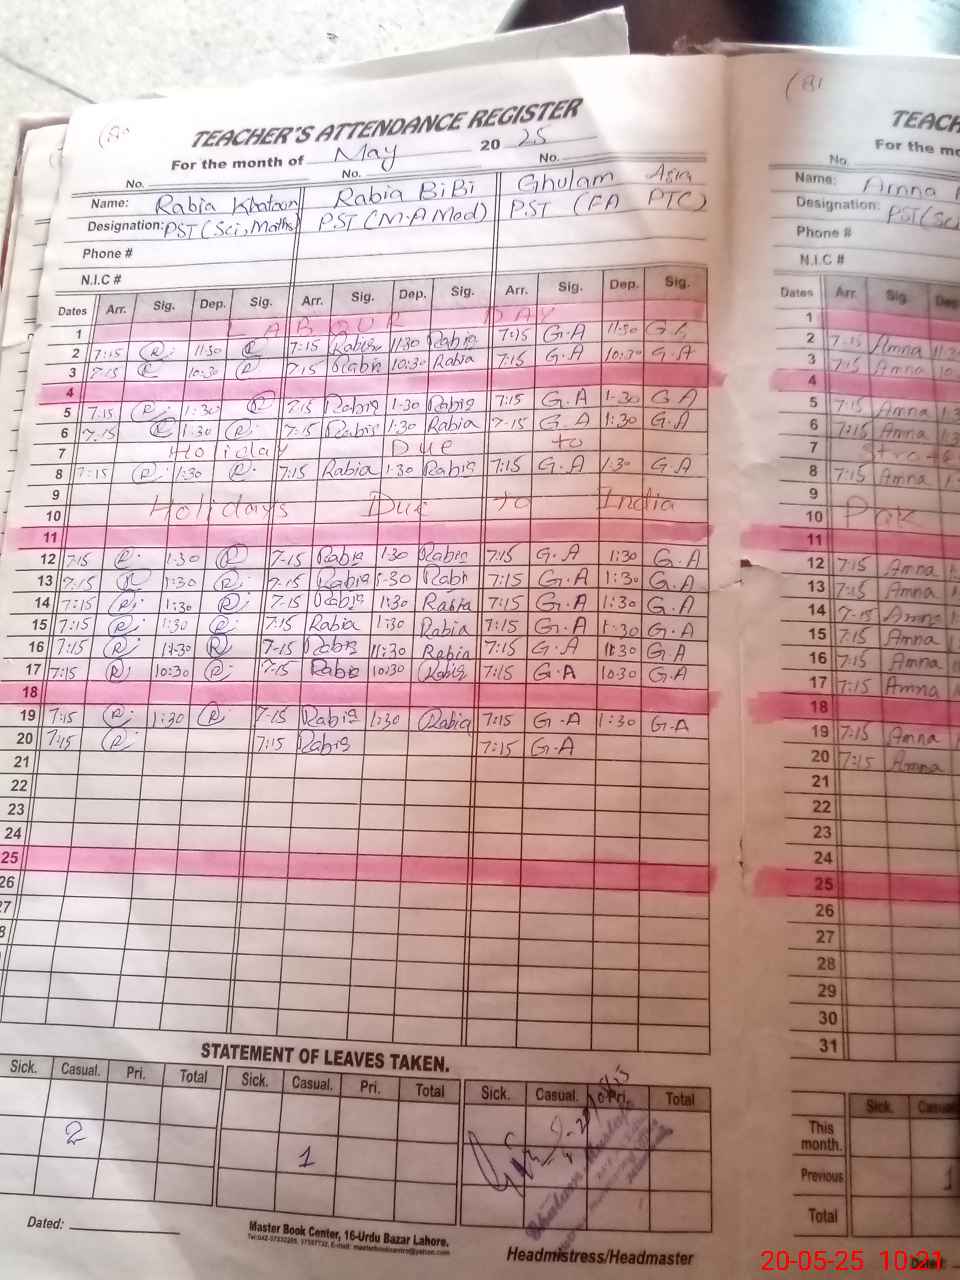 TEACHER'S ATTENDANCE REGISTER
For the month of May 2025
No. No. No.
Name: Rabia Khatoon Rabia BiBi Ghulam Asia
Designation: PST (Sci, Maths) PST (M.A Mod) PST (FA PTC)
Phone #
N.I.C #
Dates Arr. Sig. Dep. Sig. Arr. Sig. Dep. Sig. Arr. Sig. Dep. Sig.
1 LABOUR DAY
2 7:15 R 11:30 R 7:15 Rabia 11:30 Rabia 7:15 G.A 11:30 G.A
3 7:15 R 10:30 R 7:15 Rabia 10:30 Rabia 7:15 G.A 10:30 G.A
4
5 7:15 R 1:30 R 7:15 Rabia 1:30 Rabia 7:15 G.A 1:30 G.A
6 7:15 R 1:30 R 7:15 Rabia 1:30 Rabia 7:15 G.A 1:30 G.A
7 Holiday Due to
8 7:15 R 1:30 R 7:15 Rabia 1:30 Rabia 7:15 G.A 1:30 G.A
9
10 Holidays Due to India
11
12 7:15 R 1:30 R 7:15 Rabia 1:30 Rabia 7:15 G.A 1:30 G.A
13 7:15 R 1:30 R 7:15 Rabia 1:30 Rabia 7:15 G.A 1:30 G.A
14 7:15 R 1:30 R 7:15 Rabia 1:30 Rabia 7:15 G.A 1:30 G.A
15 7:15 R 1:30 R 7:15 Rabia 1:30 Rabia 7:15 G.A 1:30 G.A
16 7:15 R 11:30 R 7:15 Rabia 11:30 Rabia 7:15 G.A 11:30 G.A
17 7:15 R 10:30 R 7:15 Rabia 10:30 Rabia 7:15 G.A 10:30 G.A
18
19 7:15 R 1:30 R 7:15 Rabia 1:30 Rabia 7:15 G.A 1:30 G.A
20 7:15 R 7:15 Rabia 7:15 G.A
21
22
23
24
25
26
27
8
STATEMENT OF LEAVES TAKEN.
Sick. Casual. Pri. Total Sick. Casual. Pri. Total Sick. Casual. Pri. Total
2 1
Dated:
Master Book Center, 16-Urdu Bazar Lahore.
Headmistress/Headmaster
TEACH
For the mo
No.
Name: Amna
Designation: PST(Sci
Phone #
N.I.C #
Dates Arr. Sig. Dep
1
2 7:15 Amna
3 7:15 Amna
4
5 7:15 Amna
6 7:15 Amna
7
8 7:15 Amna
9
10 Pak
11
12 7:15 Amna
13 7:15 Amna
14 7:15 Amna
15 7:15 Amna
16 7:15 Amna
17 7:15 Amna
18
19 7:15 Amna
20 7:15 Amna
21
22
23
24
25
26
27
28
29
30
31
Sick. Casua
This month.
Previous 1
Total
20-05-25 10:21